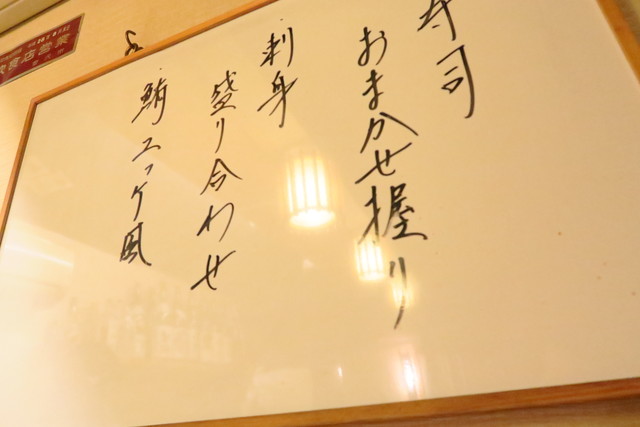 寿司
おまかせ握り
刺身
盛り合わせ
鮪ユッケ風